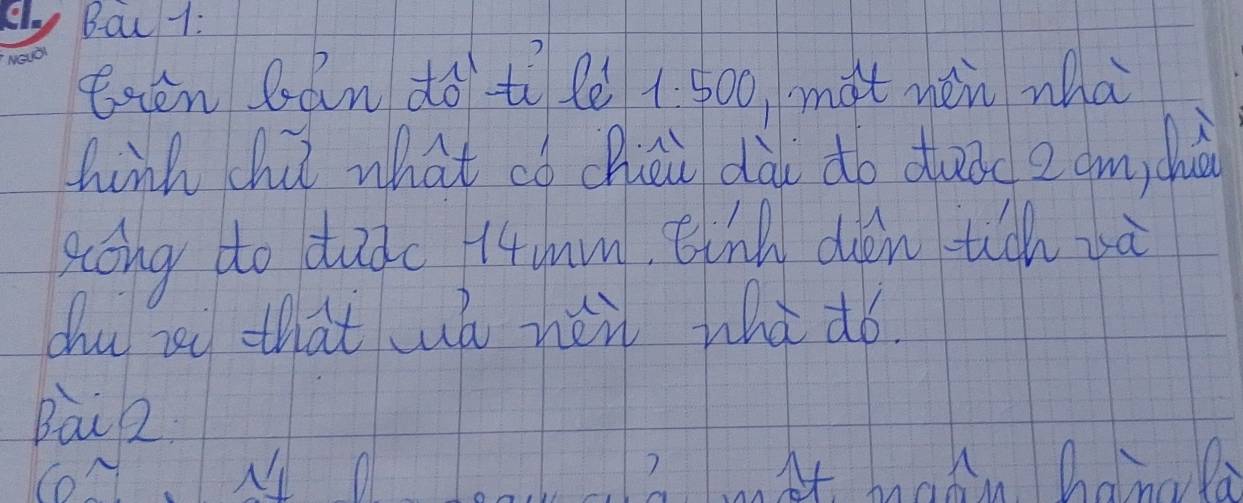 NGƯỜI
Bài 1:
Trên bản đồ tỉ lệ 1:500, một nền nhà
hình chữ nhật có chiều dài đo được 2 cm, chiều
rộng đo được 14mm. Tính diện tích và
chu vi thật của nền nhà đó.
Bài 2:
một ngân hàng là